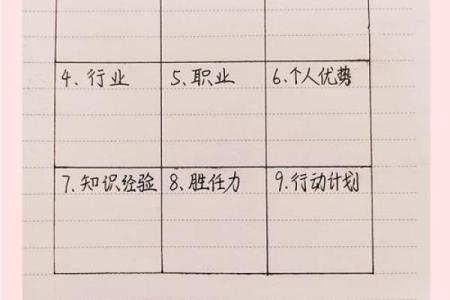 4. 行业 5. 职业 6. 个人优势
7. 知识经验 8. 胜任力 9. 行动计划